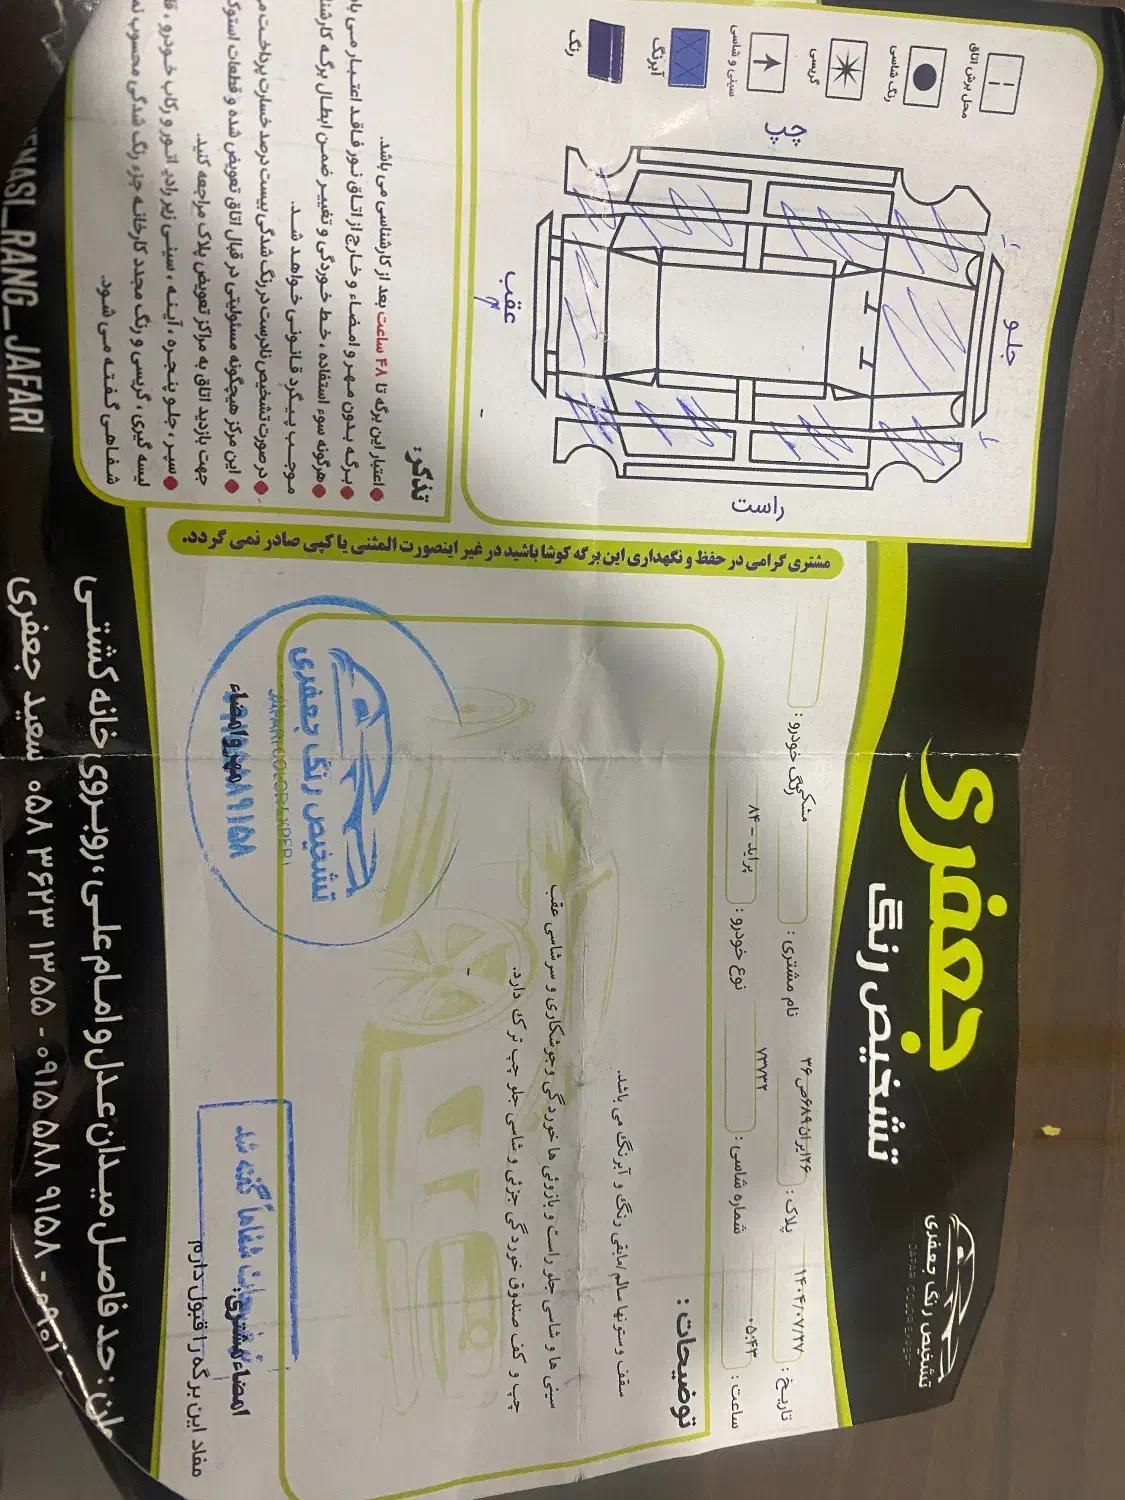 جعفری
تشخیص رنگ
تشخیص رنگ جعفری
JAFARI COLOR EXPERT
تاریخ : ۱۴۰۴/۰۷/۲۷
پلاک :
نام مشتری :
رنگ خودرو : مشکی
ساعت : ۰۵:۴۳
شماره شاسی : ۷۳۷۳۲
نوع خودرو : پراید - ۸۴
توضیحات :
سقف و ستونها سالم/مابقی رنگ و آبرنگ می باشد.
سینی ها و شاسی جلو راست و بازوئی ها خوردگی وجوشکاری و سرشاسی عقب
چپ و کف صندوق خوردگی جزئی و شاسی جلو چپ ترک دارد.
مفاد این برگه را قبول دارم
امضاء مشتری
شفاهاً گفته شد
مهر و امضاء
تشخیص رنگ جعفری
JAFARI COLOR EXPERT
مشتری گرامی در حفظ و نگهداری این برگه کوشا باشید در غیر اینصورت المثنی یا کپی صادر نمی گردد.
محل برش اتاق
رنگ شاسی
گریسی
سینی و شاسی
آبرنگ
رنگ
چپ
جلو
عقب
راست
تذکر:
اعتبار این برگه تا ۴۸ ساعت بعد از کارشناسی می باشد.
برگه بدون مهر و امضاء و خارج از اتاق نور فاقد اعتبار می با
هرگونه سوء استفاده ، خط خوردگی و تغییر ضمن ابطال برگه کارشنا
موجب پیگرد قانونی خواهد شد.
در صورت تشخیص نادرست در رنگ شدگی بیست درصد خسارت پرداخت م
این مرکز هیچگونه مسئولیتی در قبال اتاق تعویض شده و قطعات استوک
جهت بازدید اتاق به مراکز تعویض پلاک مراجعه کنید.
سپر ، جلو پنجره ، آینه ، سینی زیر رادیاتور و رکاب خودرو ، قا
لیسه گیری ، گریسی و رنگ مجدد کارخانه جزء رنگ شدگی محسوب نم
شفاهی گفته می شود.
حد فاصل میدان عدل و امام علی ، روبروی خانه کشتی
۰۹۱۵ ۵۸۸ ۹۱۵۸ - ۰۵۸ ۳۶۲۳ ۱۳۵۵ سعید جعفری
ENASI_RANG_JAFARI